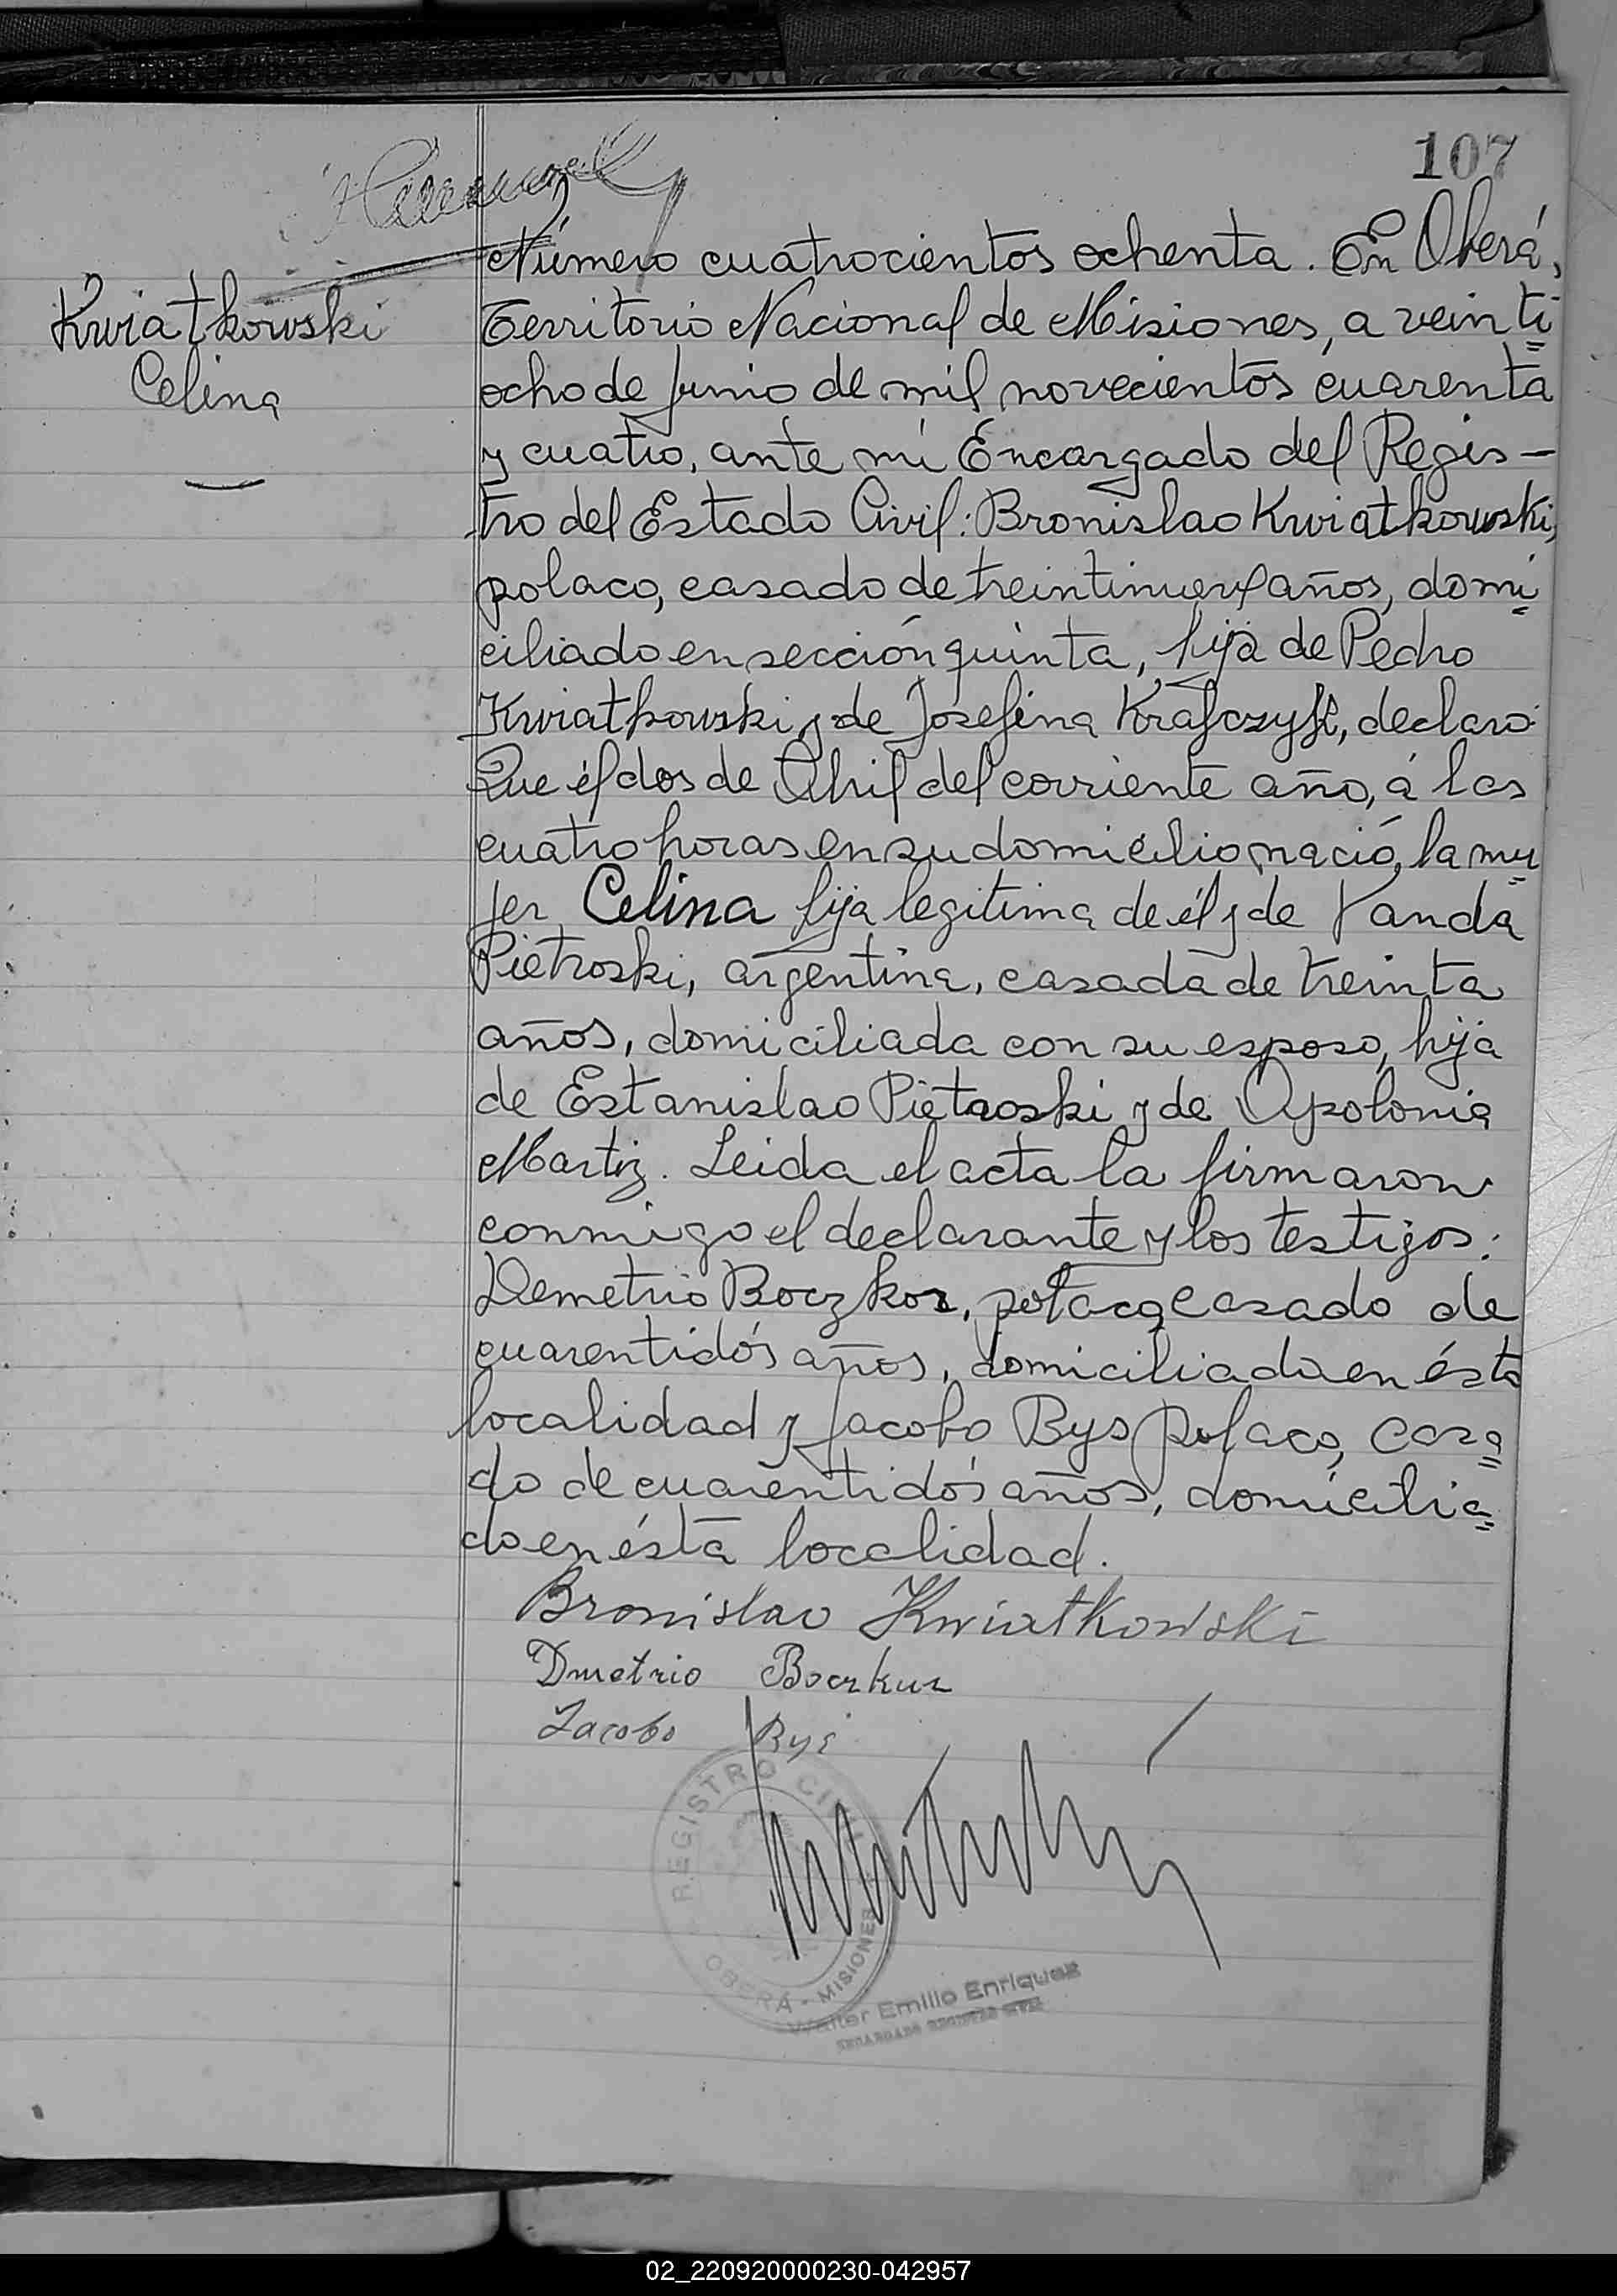 107
Kwiatkowski
Celina
Número cuatrocientos ochenta. En Oberá,
Territorio Nacional de Misiones, a veinti=
ocho de Junio de mil novecientos cuarenta
y cuatro, ante mi Encargado del Regis-
tro del Estado Civil: Bronislao Kwiatkowski,
polaco, casado de treintinueve años, domi=
ciliado en sección quinta, hija de Pedro
Kwiatkowski y de Josefina Krafczyk, declaró:
Que él dos de Abril del corriente año, á las
cuatro horas en su domicilio nació, la mu=
jer Celina hija legitima de él y de Vanda
Pietroski, argentina, casada de treinta
años, domiciliada con su esposo, hija
de Estanislao Pietroski y de Apolonia
Martiz. Leida el acta la firmaron
conmigo el declarante y los testigos:
Demetrio Boczkor, polaco, casado de
cuarentidós años, domiciliado en ésta
localidad y Jacobo Bys polaco, casa=
do de cuarentidós años, domicilia=
do en ésta localidad.
Bronislao Kwiatkowski
Dmetrio Boczkur
Jacobo Bys
REGISTRO CIVIL
OBERÁ - MISIONES
Walter Emilio Enriquez
ENCARGADO REGISTRO CIVIL
02_220920000230-042957